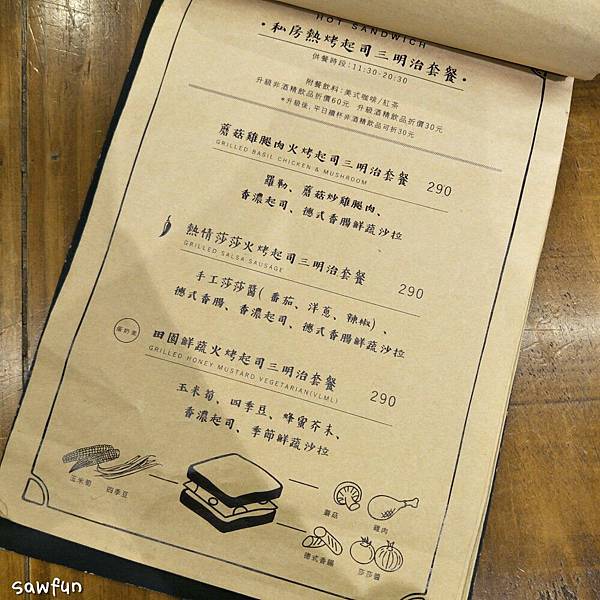 HOT SANDWICH
•私房熱烤起司三明治套餐•
供餐時段:11:30-20:30
附餐飲料:美式咖啡/紅茶
升級非酒精飲品折價60元 升級酒精飲品折價30元
*升級後,平日續杯非酒精飲品可折30元
蘑菇雞腿肉火烤起司三明治套餐 290
GRILLED BASIL CHICKEN & MUSHROOM
羅勒、蘑菇炒雞腿肉、
香濃起司、德式香腸鮮蔬沙拉
熱情莎莎火烤起司三明治套餐 290
GRILLED SALSA SAUSAGE
手工莎莎醬(番茄、洋蔥、辣椒)、
德式香腸、香濃起司、德式香腸鮮蔬沙拉
蛋奶素
田園鮮蔬火烤起司三明治套餐 290
GRILLED HONEY MUSTARD VEGETARIAN(VLML)
玉米筍、四季豆、蜂蜜芥末、
香濃起司、季節鮮蔬沙拉
玉米筍 四季豆
蘑菇 雞肉
德式香腸 莎莎醬
sawfun